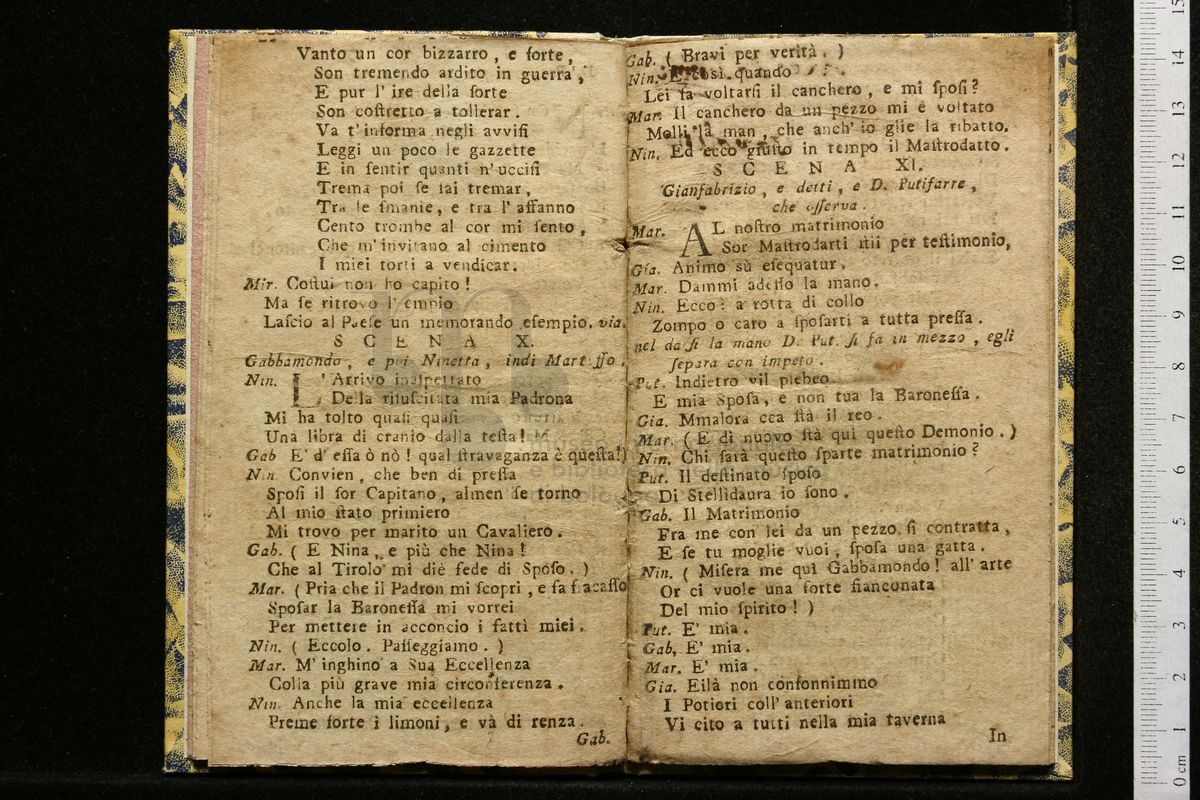 Vanto un cor bizzarro, e forte,
Son tremendo ardito in guerra,
E pur l'ire della forte
Son coſtretto a tollerar.
Va t'informa negli avviſi
Leggi un poco le gazzette
E in ſentir quanti n'ucciſi
Trema poi ſe fai tremar,
Tra le ſmanie, e tra l'affanno
Cento trombe al cor mi ſento,
Che m'invitano al cimento
I miei torti a vendicar.
Mir. Coſtui non ho capito!
Ma ſe ritrovo l'empio
Laſcio al Paeſe un memorando eſempio. via.
SCENA X.
Gabbamondo, e poi Ninetta, indi Martuffo.
Nin. L'Arrivo inaſpettato
Della riſuſcitata mia Padrona
Mi ha tolto quaſi quaſi
Una libra di cranio dalla teſta!
Gab E' d' eſſa ò nò! qual ſtravaganza è queſta!)
Nin. Convien, che ben di preſſa
Spoſi il ſor Capitano, almen ſe torno
Al mio ſtato primiero
Mi trovo per marito un Cavaliero.
Gab. (E Nina, e più che Nina!
Che al Tirolo mi diè fede di Spoſo.)
Mar. (Pria che il Padron mi ſcopri, e fa fracaſſo
Spoſar la Baroneſſa mi vorrei
Per mettere in acconcio i fatti miei.
Nin. (Eccolo. Paſſeggiamo.)
Mar. M'inghino a Sua Eccellenza
Colla più grave mia circonferenza.
Nin. Anche la mia eccellenza
Preme forte i limoni, e và di renza.
Gab.
Gab. (Bravi per verità.)
Nin. E così quando
Lei fa voltarſi il canchero, e mi ſpoſi?
Mar. Il canchero da un pezzo mi è voltato
Molli là man, che anch'io glie la ribatto.
Nin. Ed ecco giuſto in tempo il Maſtrodatto.
SCENA XI.
Gianfabrizio, e detti, e D. Putifarre,
che oſſerva.
Mar. AL noſtro matrimonio
Sor Maſtrodarti ſtii per teſtimonio,
Gia. Animo sù eſequatur.
Mar. Dammi adeſſo la mano.
Nin. Ecco: a rotta di collo
Zompo o caro a ſpoſarti a tutta preſſa.
nel da ſi la mano D. Put. ſi fa in mezzo, egli
ſepara con impeto.
Put. Indietro vil plebeo
E mia Spoſa, e non tua la Baroneſſa.
Gia. Mmalora cca ſtà il reo.
Mar. (E di nuovo ſtà quì queſto Demonio.)
Nin. Chi ſarà queſto ſparte matrimonio?
Put. Il deſtinato ſpoſo
Di Stellidaura io ſono.
Gab. Il Matrimonio
Fra me con lei da un pezzo ſi contratta,
E ſe tu moglie vuoi, ſpoſa una gatta.
Nin. (Miſera me quì Gabbamondo! all'arte
Or ci vuole una forte fianconata
Del mio ſpirito!)
Put. E' mia.
Gab, E' mia.
Mar. E' mia.
Gia. Eilà non conſonnimmo
I Potiori coll'anteriori
Vi cito a tutti nella mia taverna
In